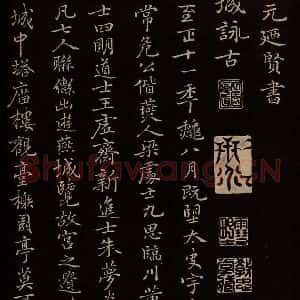 元廼賢書
城詠古
至正十一年龝八月既望太史宇
常危公偕燕人梁處士九思臨川黃
士四明道士王虛齋新進士朱夢炎
凡七人聯轡出遊燕城覽故宮之遺
城中塔廟樓觀臺榭園亭莫
Shufawang.CN